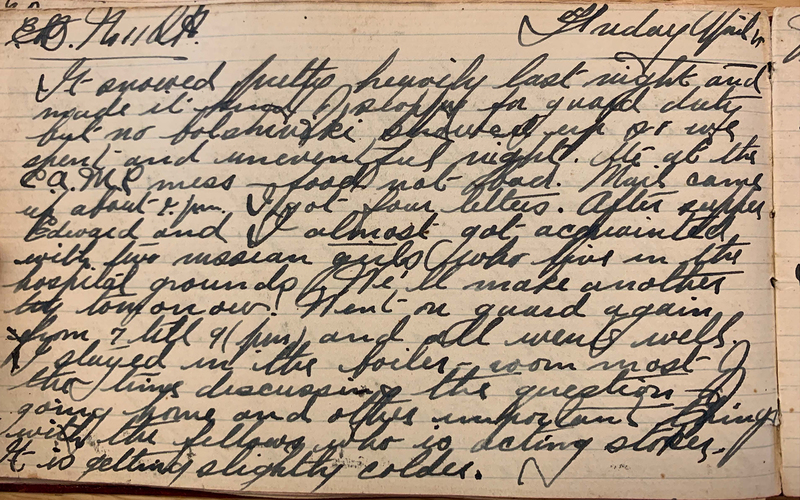 Friday April
It snowed pretty heavily last night and
made it kind of sloppy for guard duty
but no bolshiviki showed up so we
spent and uneventful night. We at the
C.A.M.C. mess - food not bad. Mail came
up about 4. pm. I got four letters. After supper
Edward and I almost got acquainted
with two russian girls (who live in the
hospital grounds) We'll make another
try tomorrow! Went on guard again
from 7 till 9 (pm) and all went well.
I stayed in the boiler-room most of
the time discussing the question of
going home and other important things
with the fellow who is acting stoker.
It is getting slightly colder.